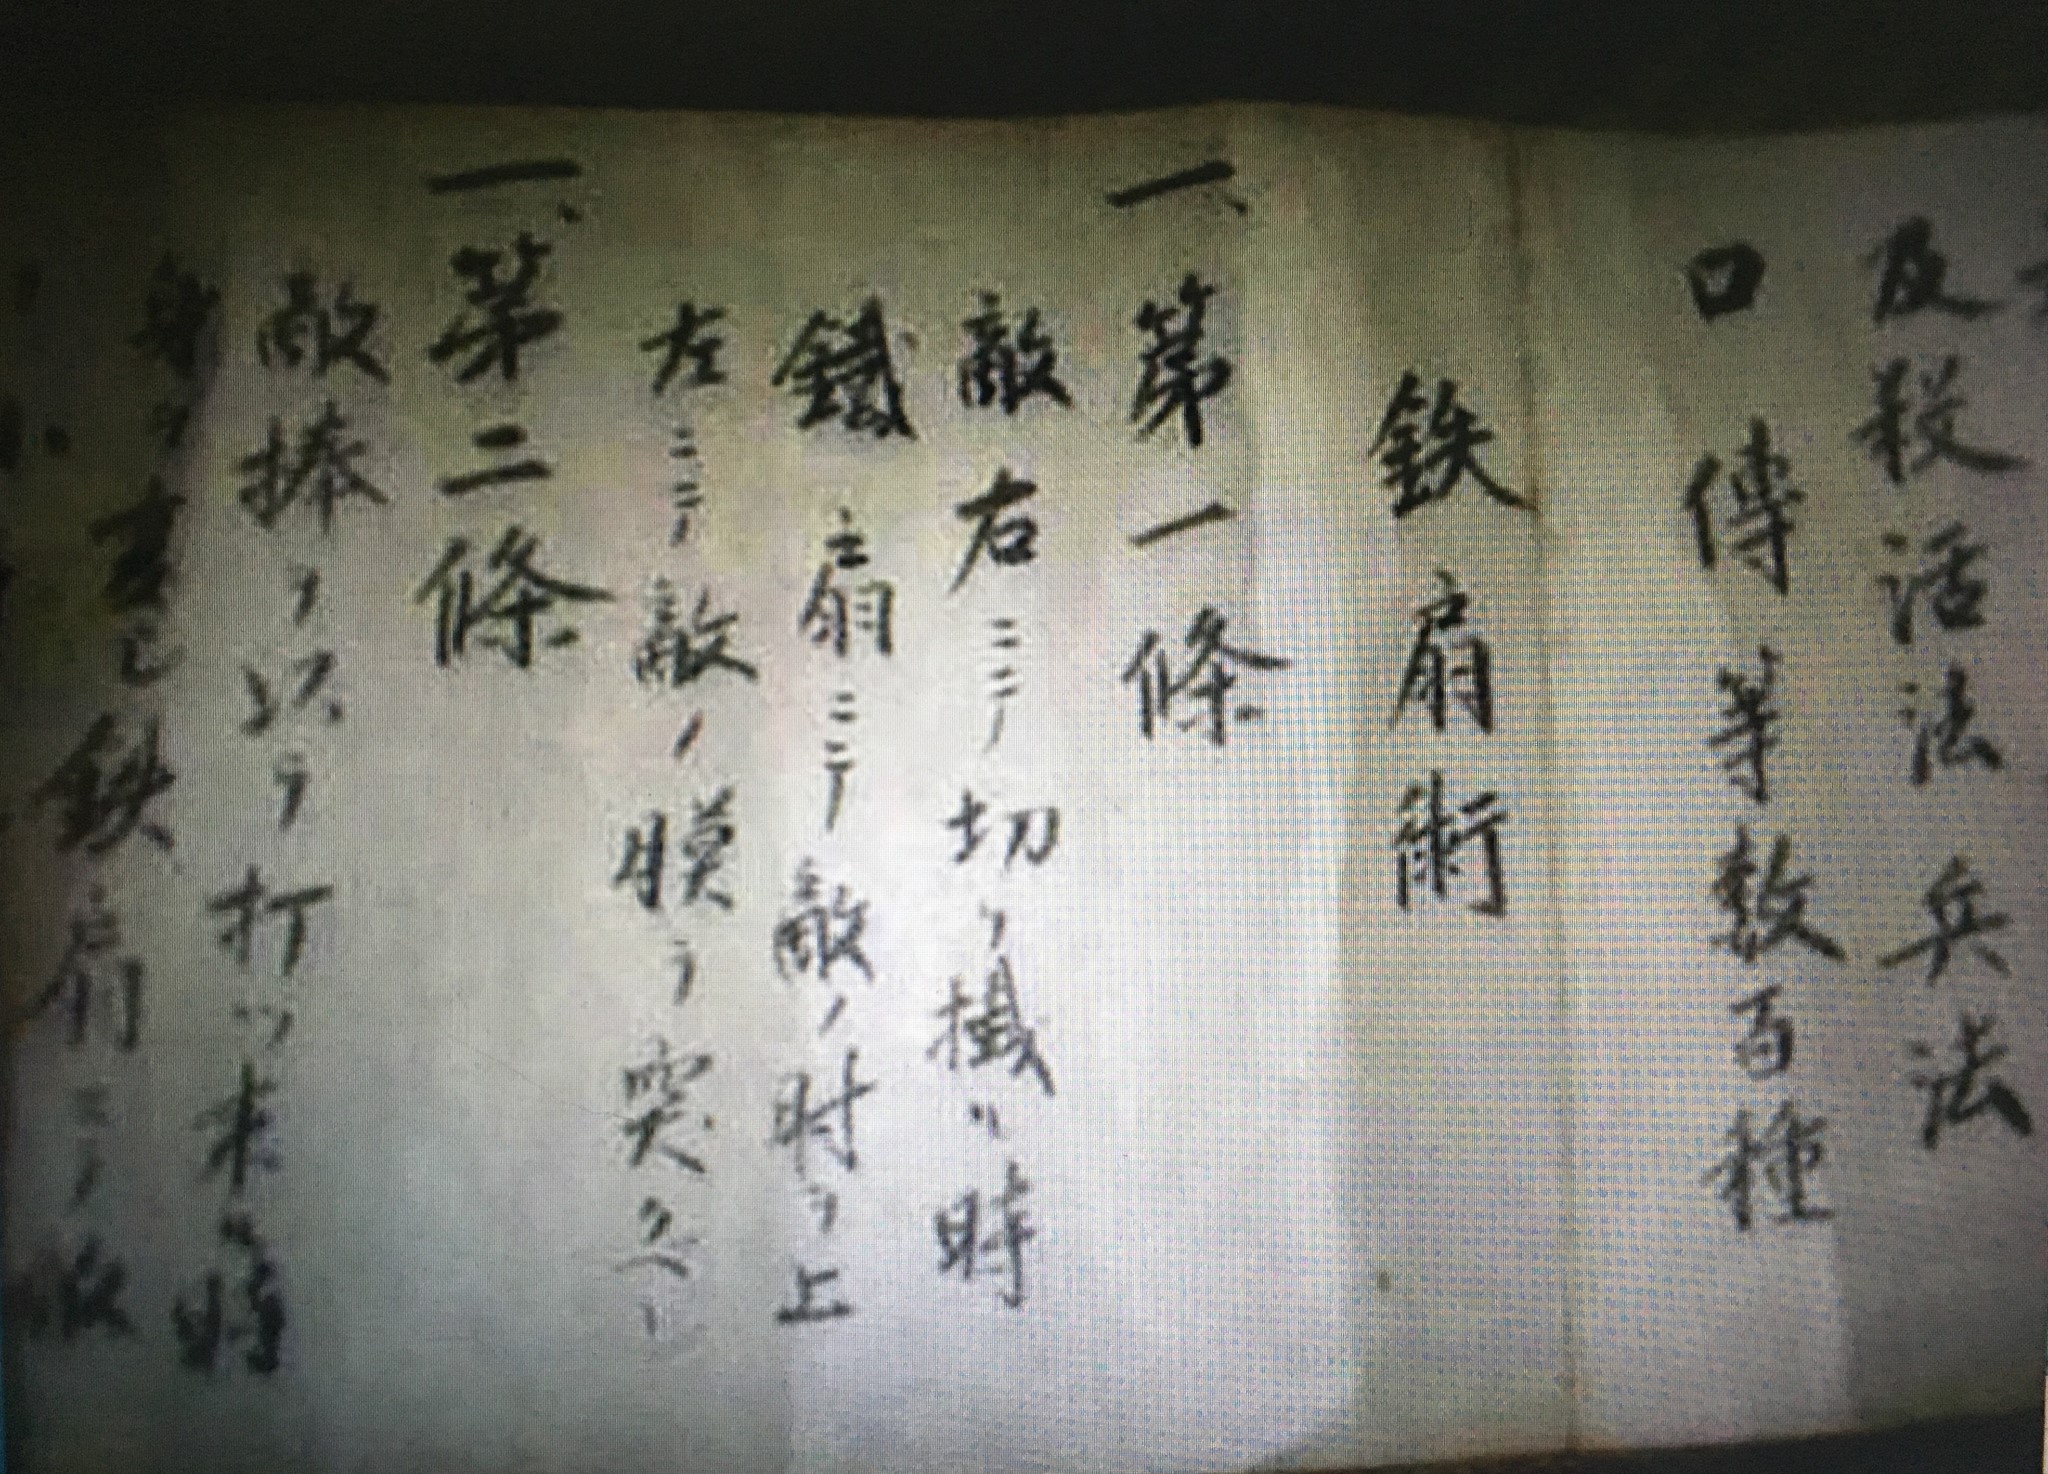 及殺活法兵法
口傳等数百種
鉄扇術
一、第一條
敵右ニテ切リ掛ル時
鐵扇ニテ敵ノ肘ヲ上
左ニテ敵ノ膜ヲ突ク
一、第二條
敵捧ノ以ヲ打ツ来ル時
鉄扇ニテ敵